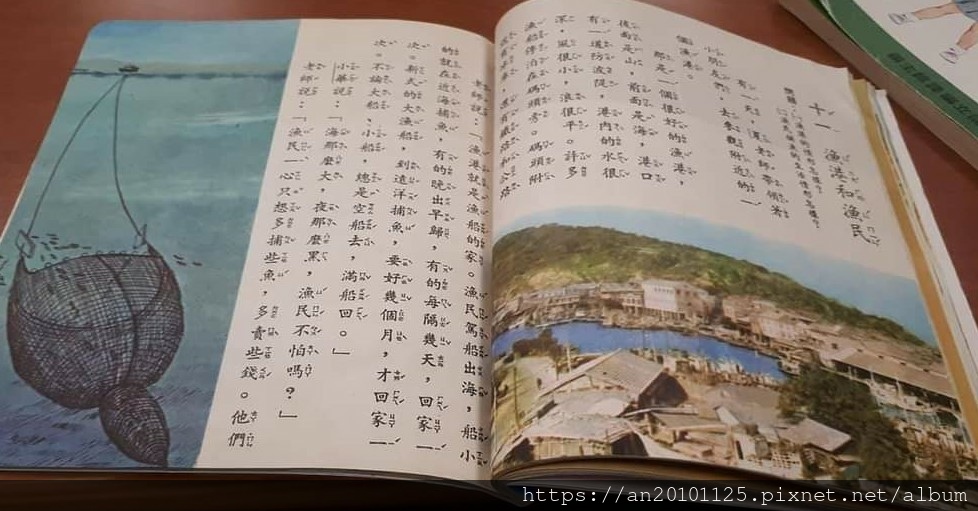 十一　漁港和漁民
問題：㈠漁港的情形怎樣？
㈡漁民捕魚的生活情形怎樣？
有一天，老師帶領
小朋友們，去參觀附近的一
個漁港。
那是一個很好的漁港，
後面是山，前面是海，港口
有一道防波堤，港內的水很
深，風很小，浪很平。許多
漁船停泊在碼頭旁。碼頭附
還有鐵路和公路
老師說：「漁港就是漁船的家。漁民駕船出海，船小
的就在近海捕魚，有的晚出早歸，有的每隔幾天，回家一
次。新式的大漁船，到遠洋捕魚，要好幾個月，才回家一
次。不論大船、小船，總是空船去，滿船回。」
小華說：「海那麼大，夜那麼黑，漁民不怕嗎？」
老師說：「漁民一心只想多捕些魚，多賣些錢。他們
https://an20101125.pixnet.net/album